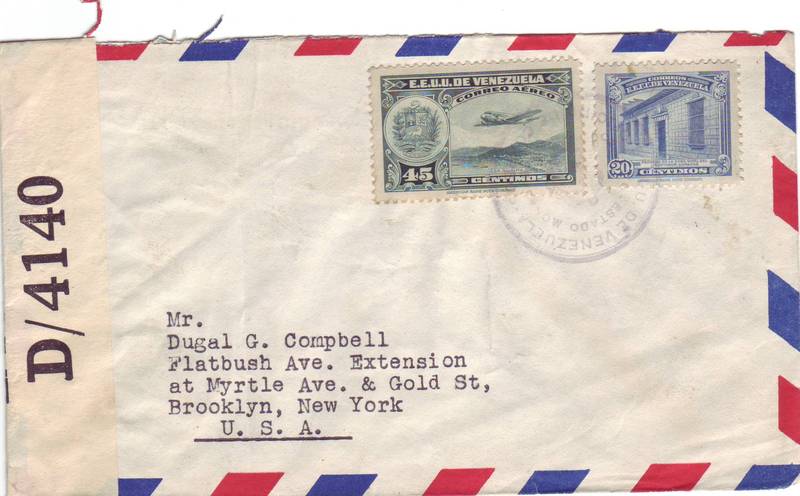 D/4140
E.E.U.U. DE VENEZUELA
CORREO AEREO
45
CENTIMOS
CORREOS
E.E.U.U. DE VENEZUELA
20
CÉNTIMOS
DE VENEZUELA
ESTADO
Mr.
Dugal G. Compbell
Flatbush Ave. Extension
at Myrtle Ave. & Gold St,
Brooklyn, New York
U. S. A.